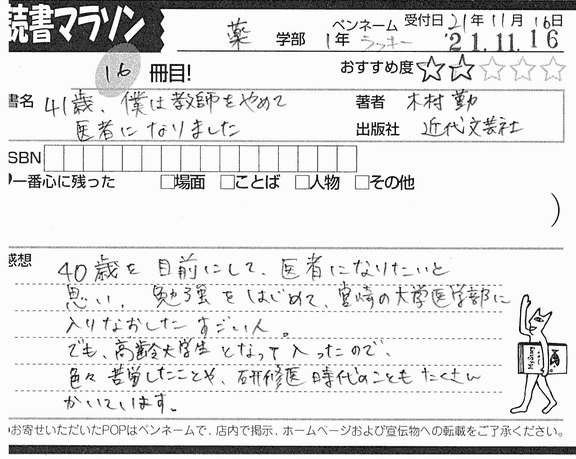 読書マラソン
薬 学部 1年 ペンネーム ラッキー 受付日 21年11月16日
'21.11.16
16 冊目!
おすすめ度 ★★☆☆☆
書名 41歳、僕は教師をやめて
医者になりました
著者 木村 勤
出版社 近代文芸社
ISBN
一番心に残った □場面 □ことば □人物 □その他
)
感想
40歳を目前にして、医者になりたいと
思い、勉強をはじめて、宮崎の大学医学部に
入りなおしたすごい人。
でも、高齢大学生となって入ったので、
色々苦労したことや、研修医時代のこともたくさん
かいています。
お寄せいただいたPOPはペンネームで、店内で掲示、ホームページおよび宣伝物への転載をご了承ください。